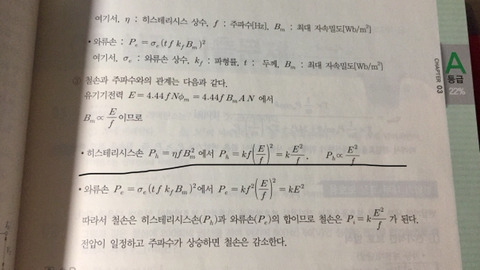 여기서, η : 히스테리시스 상수, f : 주파수[Hz], Bₘ : 최대 자속밀도[Wb/m²]
• 와류손 : Pₑ = σₑ(tf k_f Bₘ)²
여기서, σₑ : 와류손 상수, k_f : 파형률, t : 두께, Bₘ : 최대 자속밀도[Wb/m²]
철손과 주파수와의 관계는 다음과 같다.
유기기전력 E = 4.44fNφₘ = 4.44fBₘAN 에서
Bₘ ∝ E/f 이므로
• 히스테리시스손 Pₕ = ηfBₘ² 에서 Pₕ = kf(E/f)² = k E²/f, Pₕ ∝ E²/f
• 와류손 Pₑ = σₑ(tf k_f Bₘ)² 에서 Pₑ = kf²(E/f)² = kE²
따라서 철손은 히스테리시스손(Pₕ)과 와류손(Pₑ)의 합이므로 철손은 Pᵢ = k E²/f 가 된다.
전압이 일정하고 주파수가 상승하면 철손은 감소한다.
CHAPTER 03
A
등급
22%